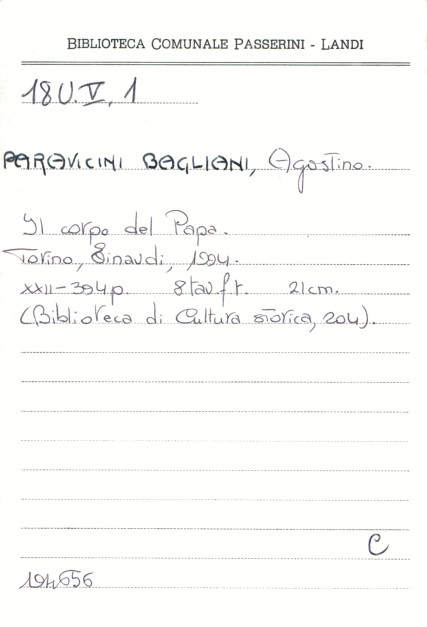 BIBLIOTECA COMUNALE PASSERINI - LANDI
18 U. V, 1
PARAVICINI BAGLIANI, Agostino.
Il corpo del Papa.
Torino, Einaudi, 1994.
XXII-394p. 8 tav. f. t. 21 cm.
(Biblioteca di Cultura storica, 204).
C
194656